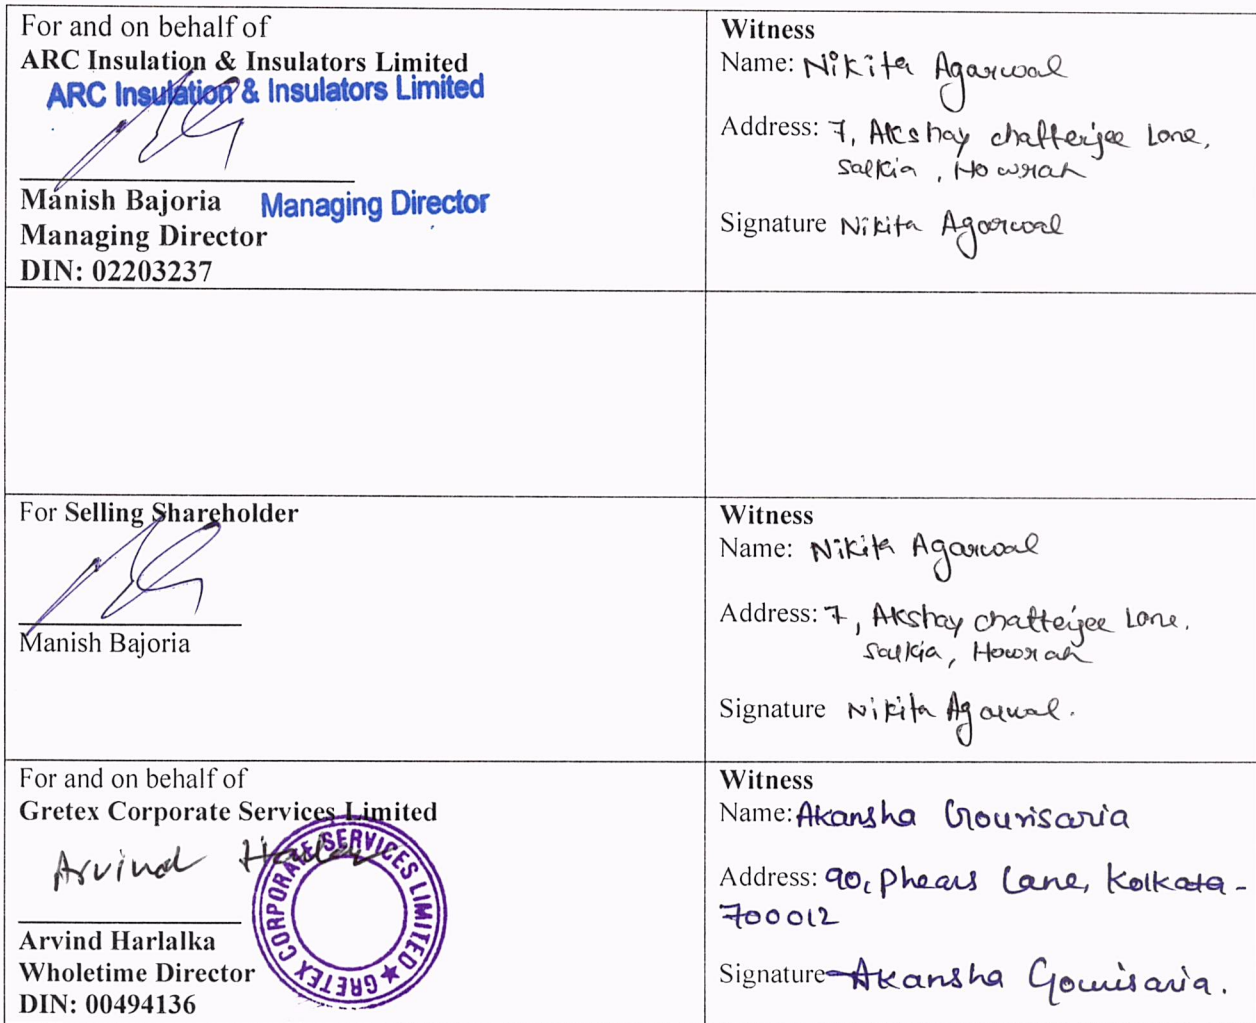 For and on behalf of
ARC Insulation & Insulators Limited
ARC Insulation & Insulators Limited
Manish Bajoria Managing Director
Managing Director
DIN: 02203237
Witness
Name: Nikita Agarwal
Address: 7, Akshay chatterjee Lane,
Salkia, Howrah
Signature Nikita Agarwal
For Selling Shareholder
Manish Bajoria
Witness
Name: Nikita Agarwal
Address: 7, Akshay chatterjee Lane.
Salkia, Howrah
Signature Nikita Agarwal.
For and on behalf of
Gretex Corporate Services Limited
Arvind Harlalka
GRETEX CORPORATE SERVICES LIMITED ★
Arvind Harlalka
Wholetime Director
DIN: 00494136
Witness
Name: Akansha Gourisaria
Address: 90, Phears Lane, Kolkata-
700012
Signature Akansha Gourisaria.